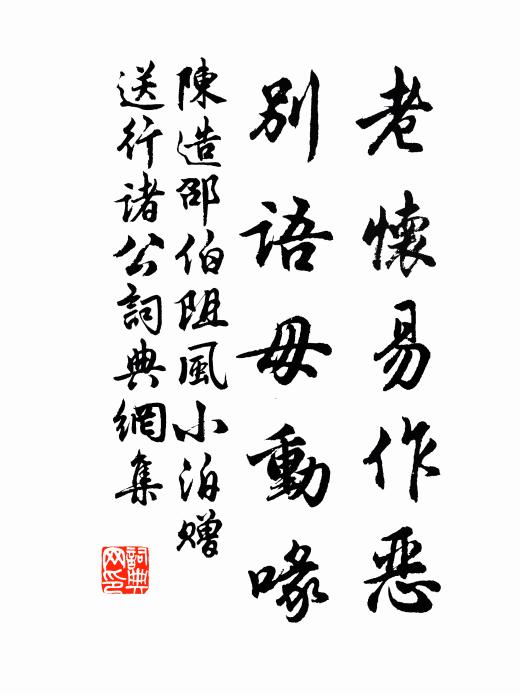 老懷易作惡
別語毋動喙
陳造邵伯阻風小泊贈
送行諸公詞典網集
詞典網印